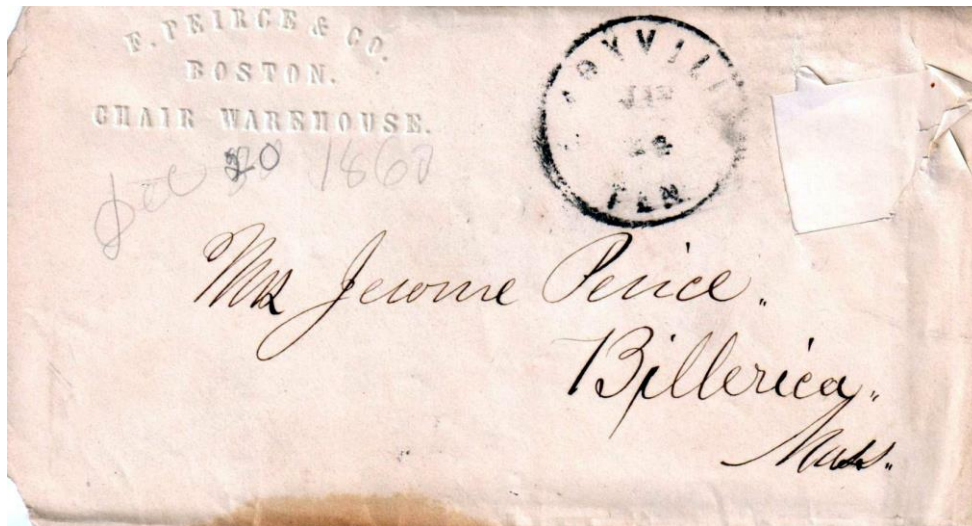 F. PEIRCE & CO.
BOSTON.
CHAIR WAREHOUSE.
Dec 20 1860
TEN
Mrs Jerome Peirce.
Billerica.
Mass.